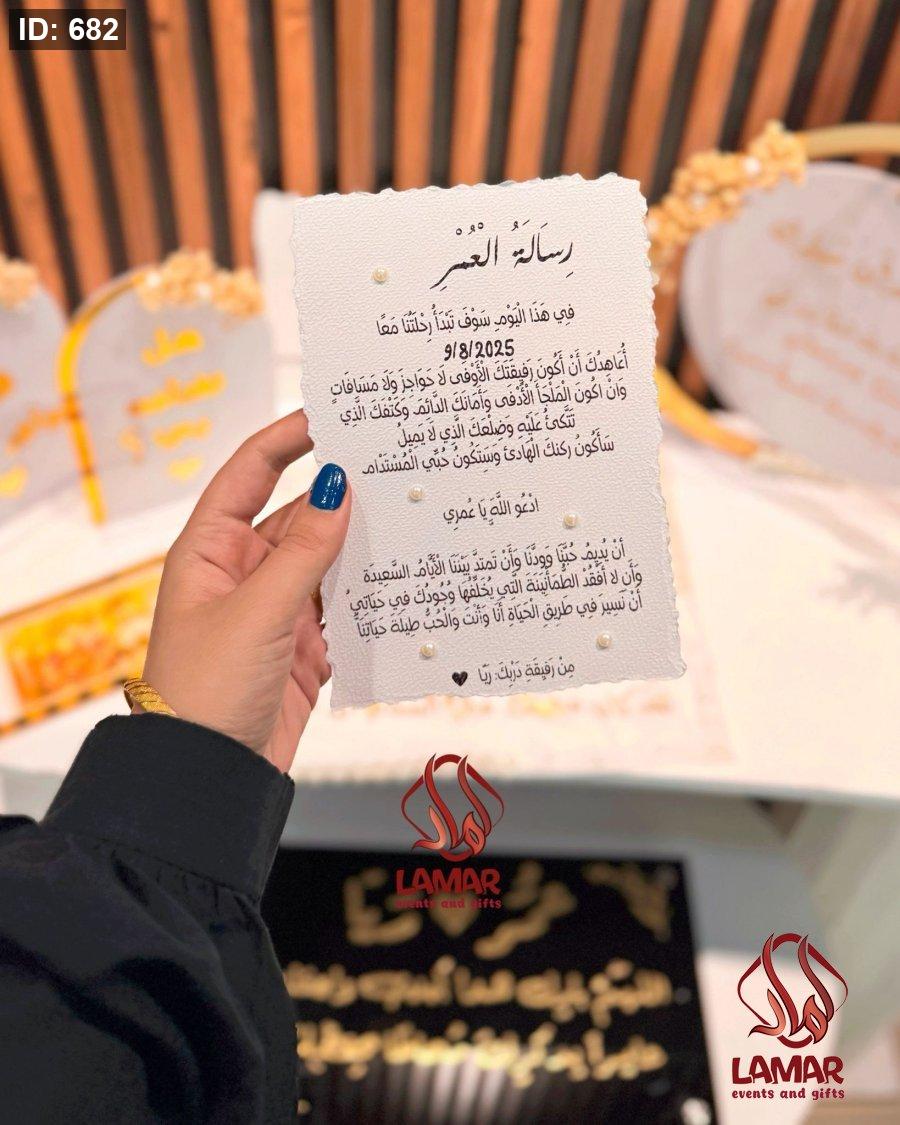 ID: 682
رِسَالَةُ الْعُمْرِ
فِي هَذَا الْيَوْمِ سَوْفَ تَبْدَأُ رِحْلَتُنَا مَعًا
9/8/2025
أُعَاهِدُكَ أَنْ أَكُونَ رَفِيقَتَكَ الْأَوْفَى لَا حَوَاجِزَ وَلَا مَسَافَاتِ
وَانْ اكُونَ الْمَلْجَأَ الْأَدْفَى وَأَمَانَكَ الدَّائِمَ وَكَتْفَكَ الَّذِي
تَتَّكِئُ عَلَيْهِ وَضِلْعَكَ الَّذِي لَا يَمِيلُ
سَأَكُونُ رُكْنَكَ الْهَادِئَ وَسَتَكُونُ حُبِّي الْمُسْتَدَام
ادْعُو اللَّهَ يَا عُمرِي
أَنْ يُدِيمَ حُبَّنَا وَوِدَّنَا وَأَنْ تَمتدَّ بَيْنَنَا الْأَيَّامُ السَّعِيدَة
وَأَن لا أَفْقُدَ الطُمَأْنِينَةَ الَّتِي يُخَلِّفُهَا وُجُودُكَ فِي حَيَاتِي
أَنْ نَسِيرَ فِي طَرِيقِ الْحَيَاةِ أَنَا وَأَنْتَ وَالْحُبُّ طِيلَةَ حَيَاتِنَا
مِنْ رَفِيقَةِ دَرْبِكَ: رَيّا
لمار
LAMAR
events and gifts
لمار
LAMAR
events and gifts